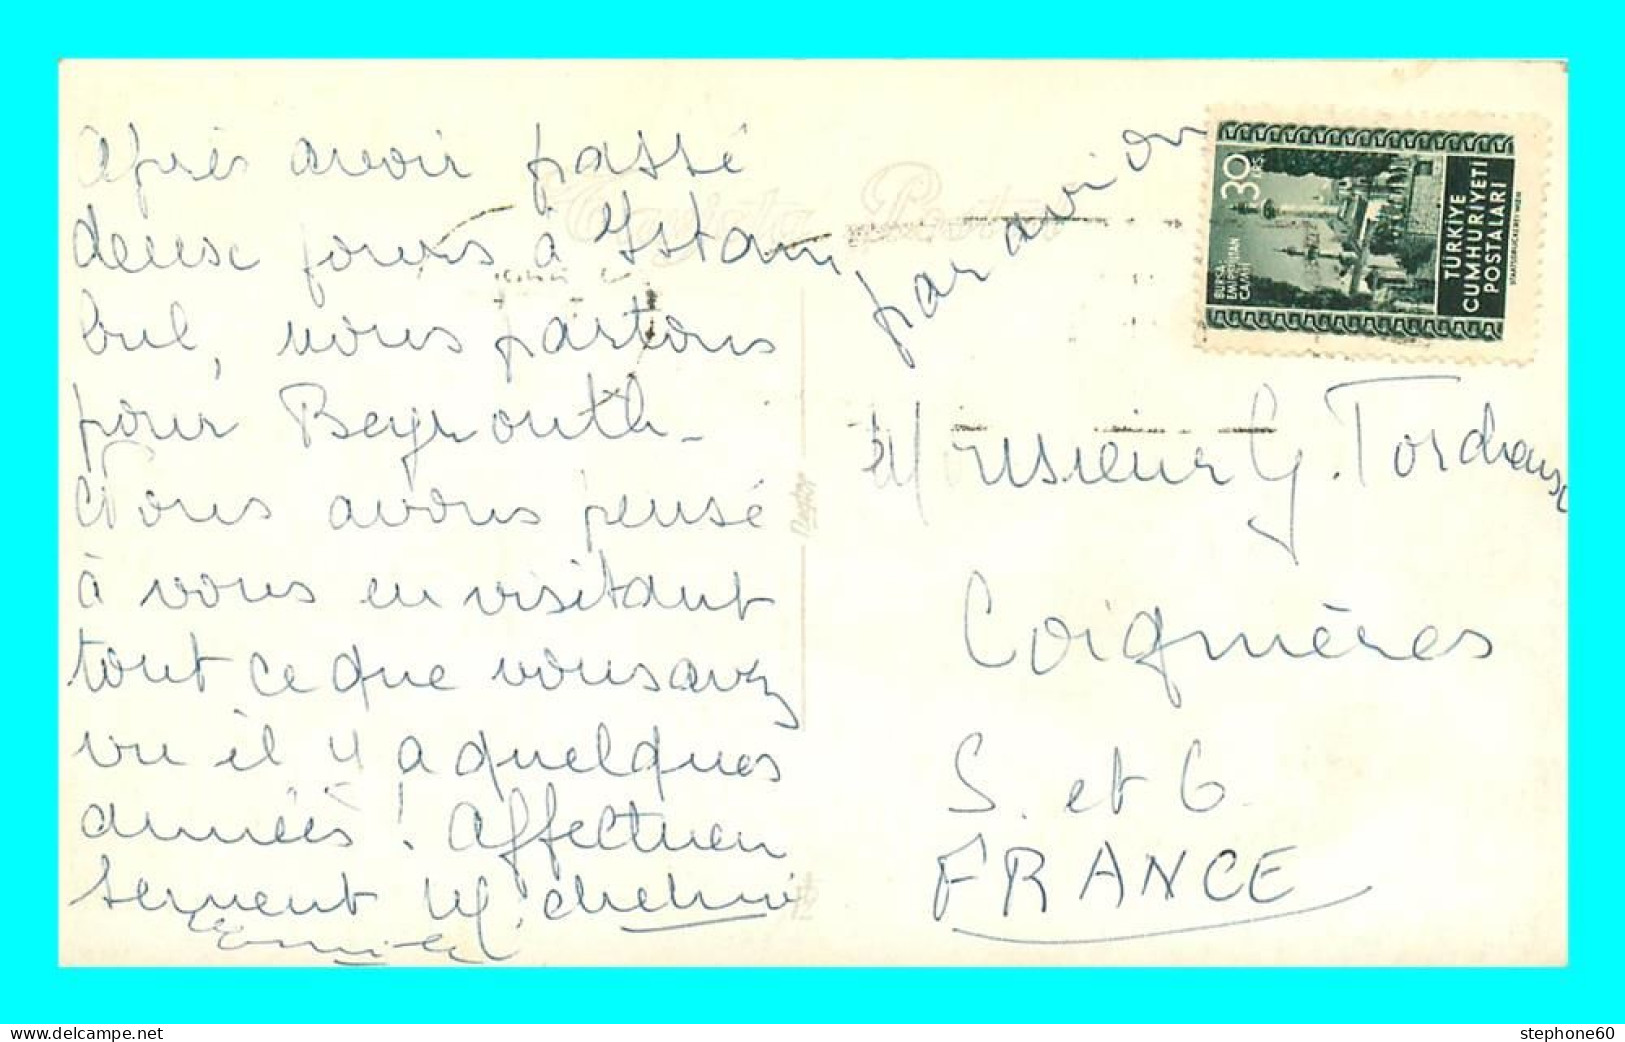 Après avoir passé
deux jours à Istam
bul, nous partons
pour Beyrouth –
Nous avons pensé
à vous en visitant
tout ce que vous avez
vu il y a quelques
années ! Affectueu
sement M.
par avion
30
KRŞ.
BURSA
EMİRSULTAN
CAMİİ
TÜRKİYE
CUMHURİYETİ
POSTALARI
Monsieur G.
Coignières
S. et O.
FRANCE
www.delcampe.net
stephone60